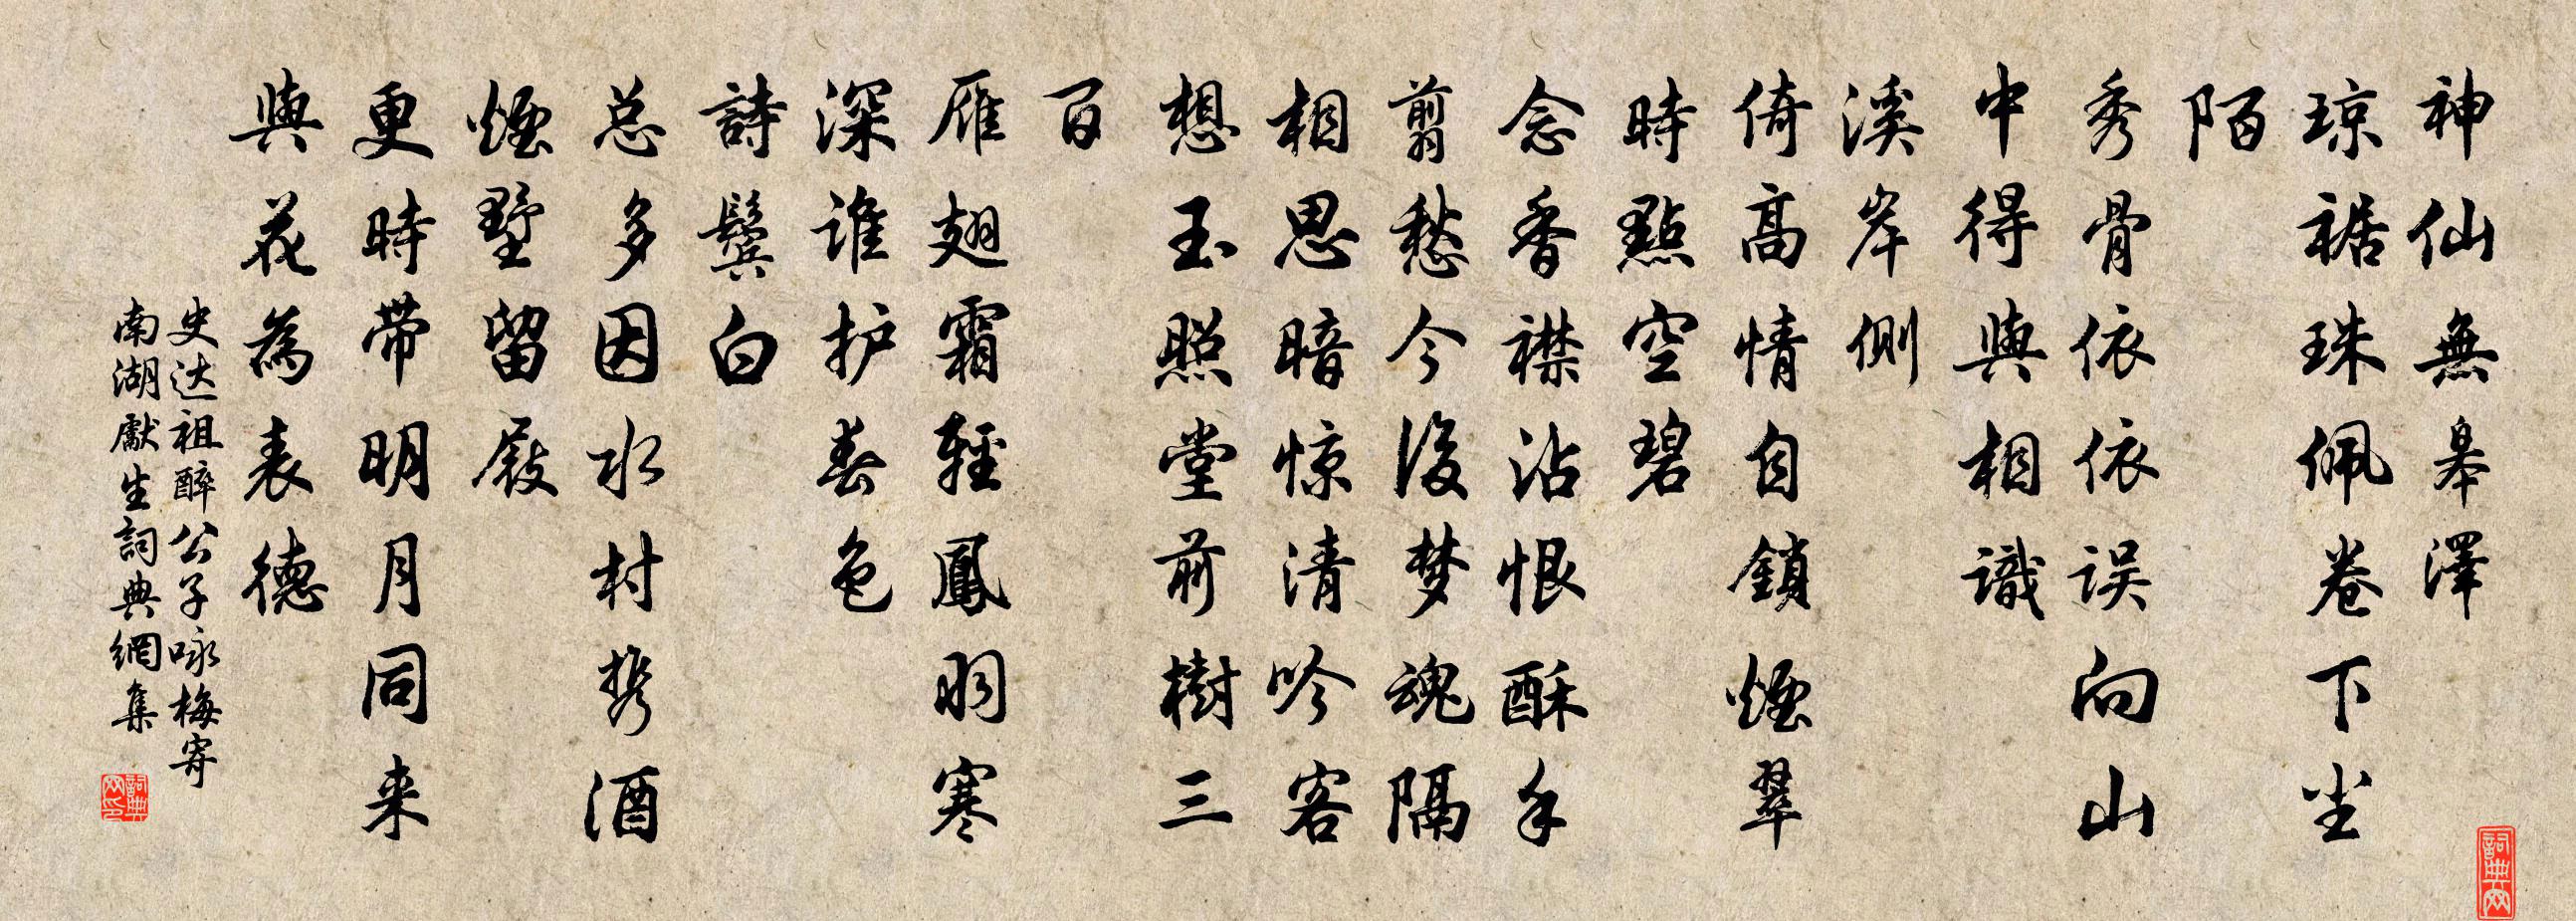 神仙無皋澤
琼裾珠佩卷下尘
陌
秀骨依依误向山
中得與相識
溪岸側
倚高情自鎖煙翠
時點空碧
念香襟沾恨酥手
剪愁今後梦魂隔
相思暗惊清吟客
想玉照堂前樹三
百
雁翅霜輕鳳羽寒
深谁护春色
詩鬓白
总多因水村携酒
煙墅留屐
更時带明月同来
與花為表德
史达祖醉公子咏梅寄
南湖獻生詞典網集
詞典网印
詞典网